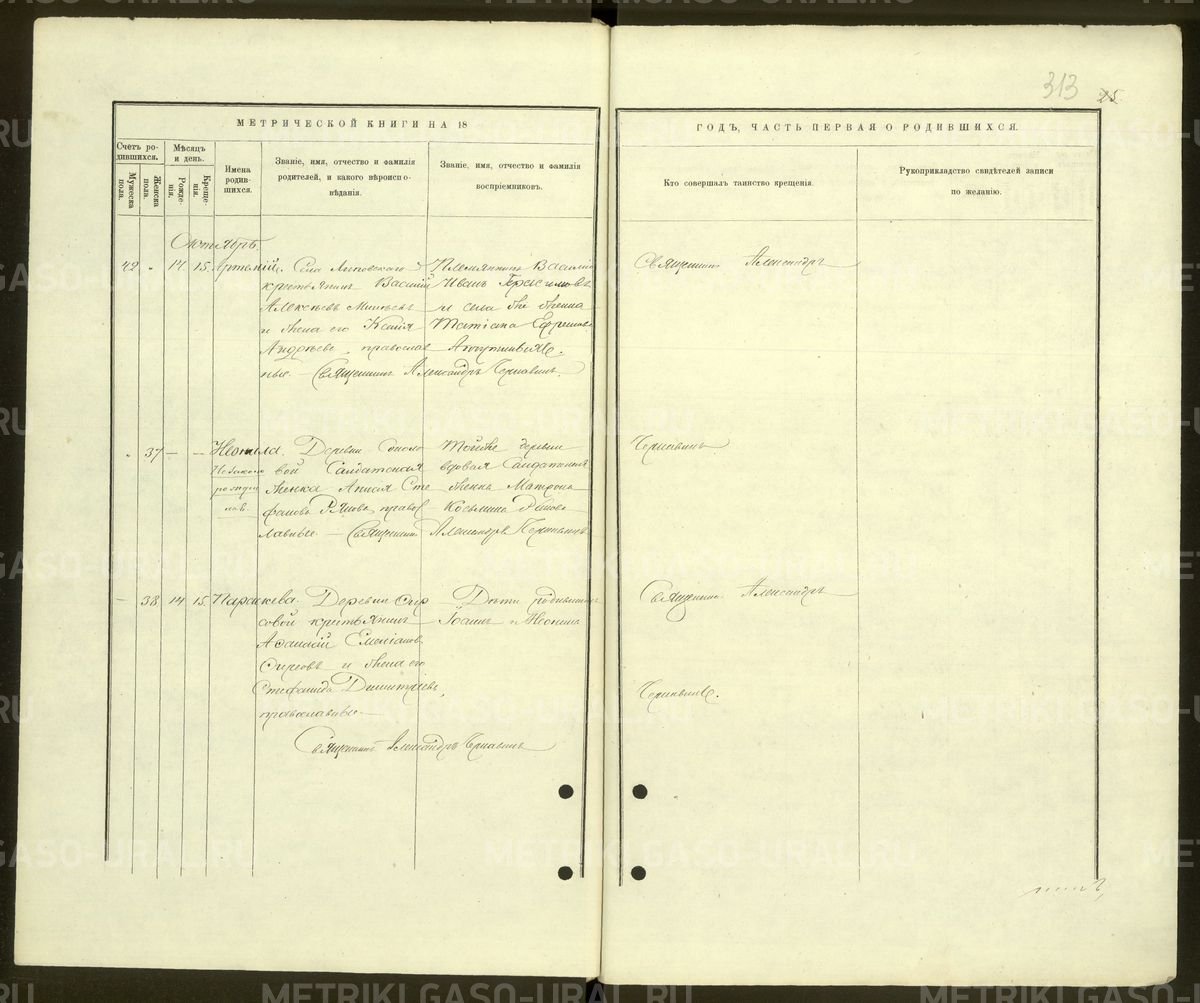 313
25.
МЕТРИЧЕСКОЙ КНИГИ НА 18
ГОДЪ, ЧАСТЬ ПЕРВАЯ О РОДИВШИХСЯ.
Счетъ родившихся.
Мужеска пола.
Женска пола.
Мѣсяцъ и день.
Рожденія.
Крещенія.
Имена родившихся.
Званіе, имя, отчество и фамилія
родителей, и какого вѣроиспо-
вѣданія.
Званіе, имя, отчество и фамилія
воспріемниковъ.
Кто совершалъ таинство крещенія.
Рукоприкладство свидѣтелей записи
по желанію.
Октябрь.
42 14 15. Артемій. Села Липовскаго
крестьянинъ Василій
Алексѣевъ
и жена его Ксенія
Андрѣева, православ
ные. — Священникъ Александръ Чернавинъ.
Племянникъ Василія
Иванъ Герасимовъ
и села
Татіана Ефремова
Священникъ Александръ
37 — — Неонила. Деревни Соколо
Незакон
рожден
ная.
вой Солдатская
женка Анисія Сте
фанова православ
лавные. — Священникъ Александръ Чернавинъ
Тойже деревни
вдовая Солдатская
женка Матрона
Козьмина
Чернавинъ
— 38 14 15. Параскева. Деревни
совой крестьянинъ
Афанасій Емеліановъ
и жена его
Стефанида Димитріева,
православные.
Священникъ Александръ Чернавинъ
Дѣти родившихъ
Іоаннъ и Неонила
Священникъ Александръ
Чернавинъ.
METRIKI.GASO-URAL.RU